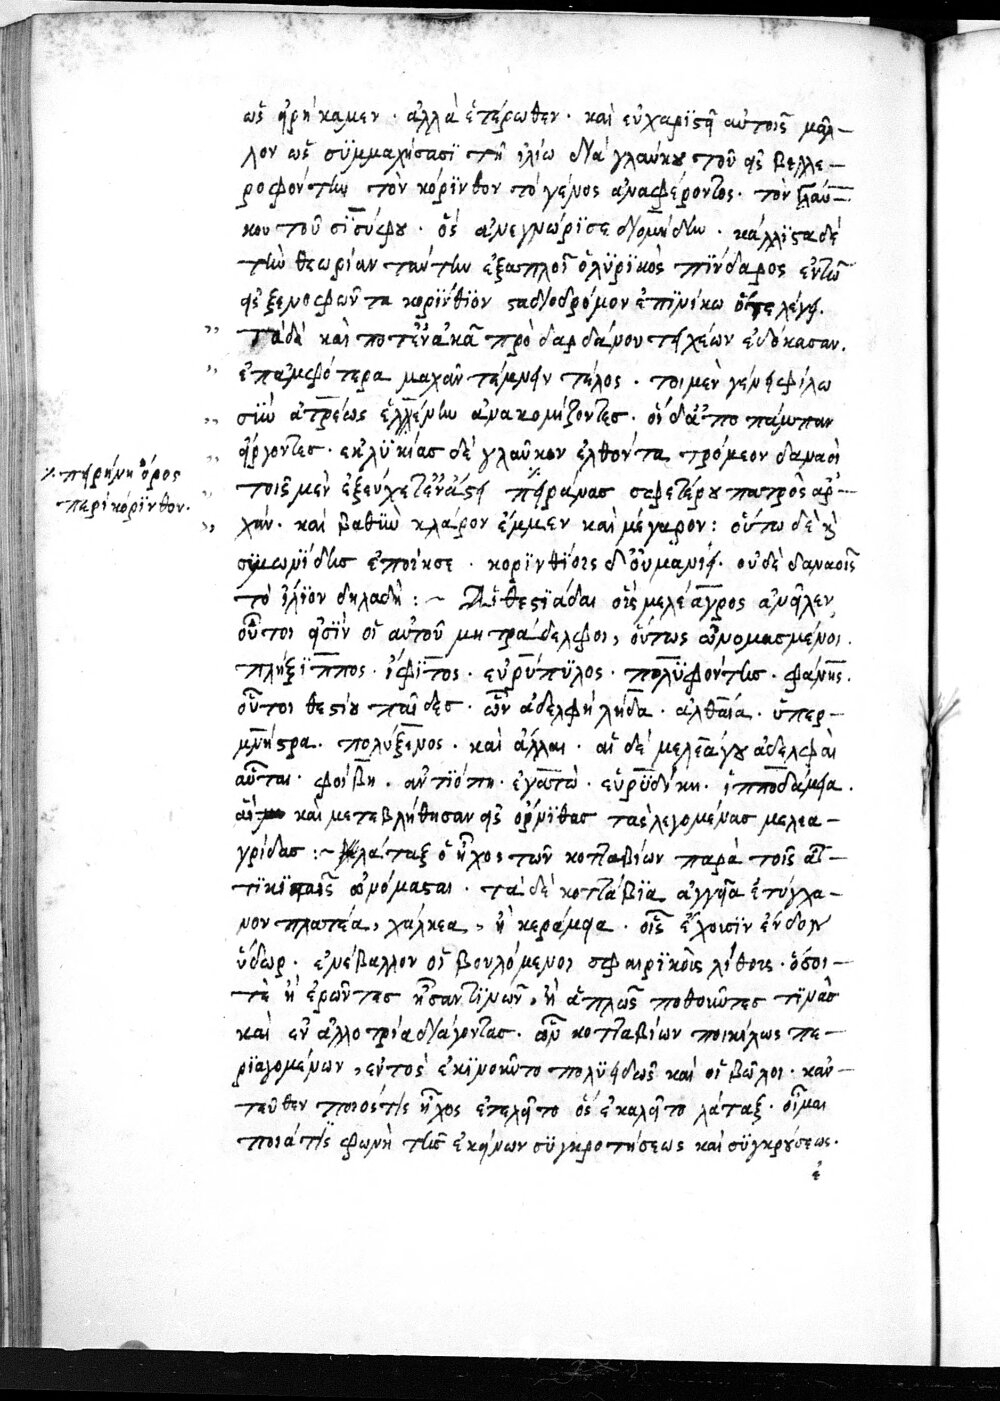 ὡς εἰρήκαμεν · ἀλλὰ ἑτέρωθεν · καὶ εὐχαριστεῖ αὐτοῖς μᾶλ–
λον ὡς συμμαχήσασι τῇ ἰλίῳ διὰ γλαύκου τοῦ εἰς βελλε–
ροφόντην τὸν κορίνθον τὸ γένος ἀναφέροντος · τὸν γλαύ–
κου τοῦ σισύφου · ὃς ἀνεγνώρισε διομήδην · κάλλιστα δὲ
τὴν θεωρίαν ταύτην ἐξαπλοῖ ὁ λυρικὸς πίνδαρος ἐν τῷ
εἰς ξενοφῶντα κορίνθιον σταδιοδρόμον ἐπινίκω ὅτε λέγει.
τάδε καὶ ποτ' ἐν ἀλκᾷ πρὸ δαρδάνου τειχέων ἐδόκασαν.
ἐπ' ἀμφότερα μαχᾶν τέμνειν τέλος · τοὶ μὲν γένει φίλω
σὺν ἀτρέως ἑλλένην ἀνακομίζοντες · οἱ δ' ἀπὸ πάμπαν
εἴργοντες · ἐκ λυκίας δὲ γλαῦκον ἐλθόντα τρόμεον δαναοὶ
τοῖς μὲν ἐξεύχετ' ἐν ἄστει πειράνας σφετέρου πατρὸς ἀρ–
χάν · καὶ βαθὺν κλᾶρον ἔμμεν καὶ μέγαρον : οὕτω δὲ καὶ
σιμωνίδης ἐποίησε · κορινθίοις δ' οὐ μανίει · οὐδὲ δαναοῖς
τὸ ἴλιον δηλαδή : ~ Αἱ θεστιάδαι οἷς μελέαγρος ἀνεῖλεν
οὗτοι εἰσὶν οἱ αὐτοῦ μητράδελφοι, οὕτως ὠνομασμένοι.
πλήξιππος · ἴφιτος · εὐρύπυλος · πολυφόντης · φάνης.
οὗτοι θεσίου παῖδες · ὧν ἀδελφή λήδα · ἀλθαία · ὑπερ–
μνήστρα · πολύξενος · καὶ ἄλλαι · αἱ δὲ μελεάγου ἀδελφαὶ
αὗται · φοίβη · ἀντιόπη · ἐγαστὼ · εὐρυδίκη · ἱπποδάμεια.
αἳ καὶ μετεβλήθησαν εἰς ὄρνιθας τὰς λεγομένας μελεα–
γρίδας : ~ λάταξ ὁ ἦχος τῶν κοτταβίων παρὰ τοῖς ἀτ–
τικισταῖς ὠνόμασται · τὰ δὲ κοττάβια ἀγγεῖα ἐτύγχα–
νον πλατέα, χάλκεα, ἢ κεράμεια · οἷς ἔχουσιν ἔνδον
ὕδωρ · ἐνέβαλλον οἱ βουλόμενοι σφαιρικοὺς λίθους · ὅσοι–
τε ἢ ἐρῶντες ἦσαν τινῶν, ἢ ἁπλῶς ποθοῦντες τινὰς
καὶ ἐν ἀλλοτρία διάγοντας · ὧν κοτταβίων ποικίλως πε–
ριαγομένων, ἐντὸς ἐκινοῦντο πολυειδῶς καὶ οἱ βῶλοι · καν–
τεῦθεν ποιός τις ἦχος ἐτελεῖτο ὃς ἐκαλεῖτο λάταξ · οἶμαι
ποιά τις φωνὴ τῆς ἐκείνων συγκροτήσεως καὶ συγκρούσεως.
πειρήνη ὄρος
περὶ κόρινθον.